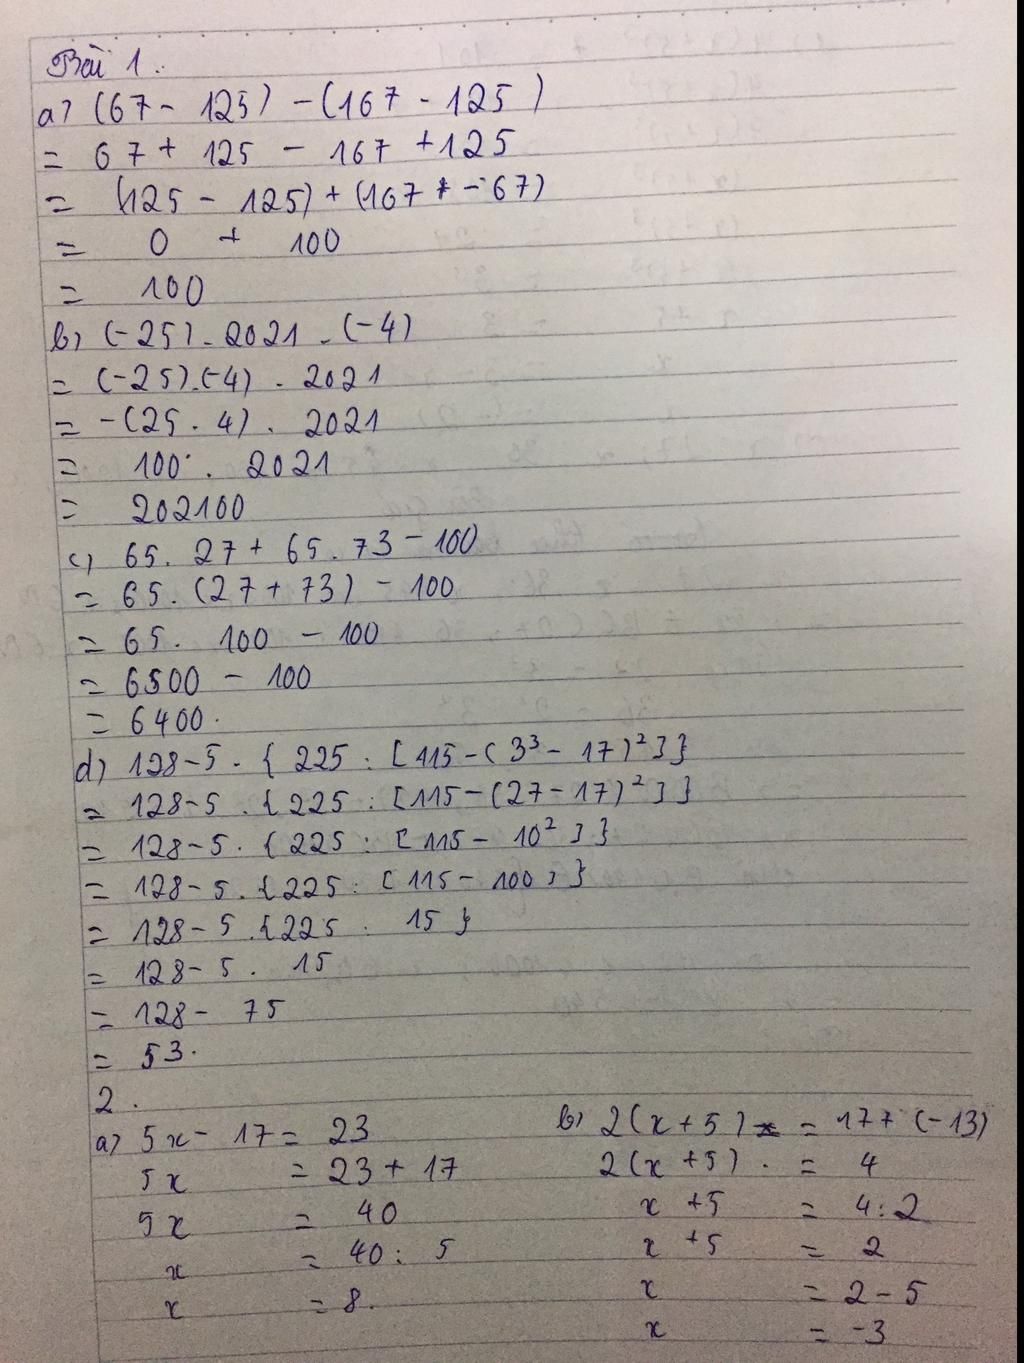 Bài 1.
a) (67 - 125) - (167 - 125)
= 67 + 125 - 167 + 125
= (125 - 125) + (167 - 67)
= 0 + 100
= 100
b) (-25) . 2021 . (-4)
= (-25).(-4) . 2021
= -(25 . 4) . 2021
= 100 . 2021
= 202100
c) 65 . 27 + 65 . 73 - 100
= 65 . (27 + 73) - 100
= 65 . 100 - 100
= 6500 - 100
= 6400.
d) 128 - 5 . { 225 : [115 - (3³ - 17)²]}
= 128 - 5 . {225 : [115 - (27 - 17)²]}
= 128 - 5 . {225 : [115 - 10²]}
= 128 - 5 . {225 : [115 - 100]}
= 128 - 5 . {225 : 15}
= 128 - 5 . 15
= 128 - 75
= 53.
2.
a) 5x - 17 = 23
5x = 23 + 17
5x = 40
x = 40 : 5
x = 8.
b) 2(x + 5) = 17 + (-13)
2(x + 5) . = 4
x + 5 = 4 : 2
x + 5 = 2
x = 2 - 5
x = -3